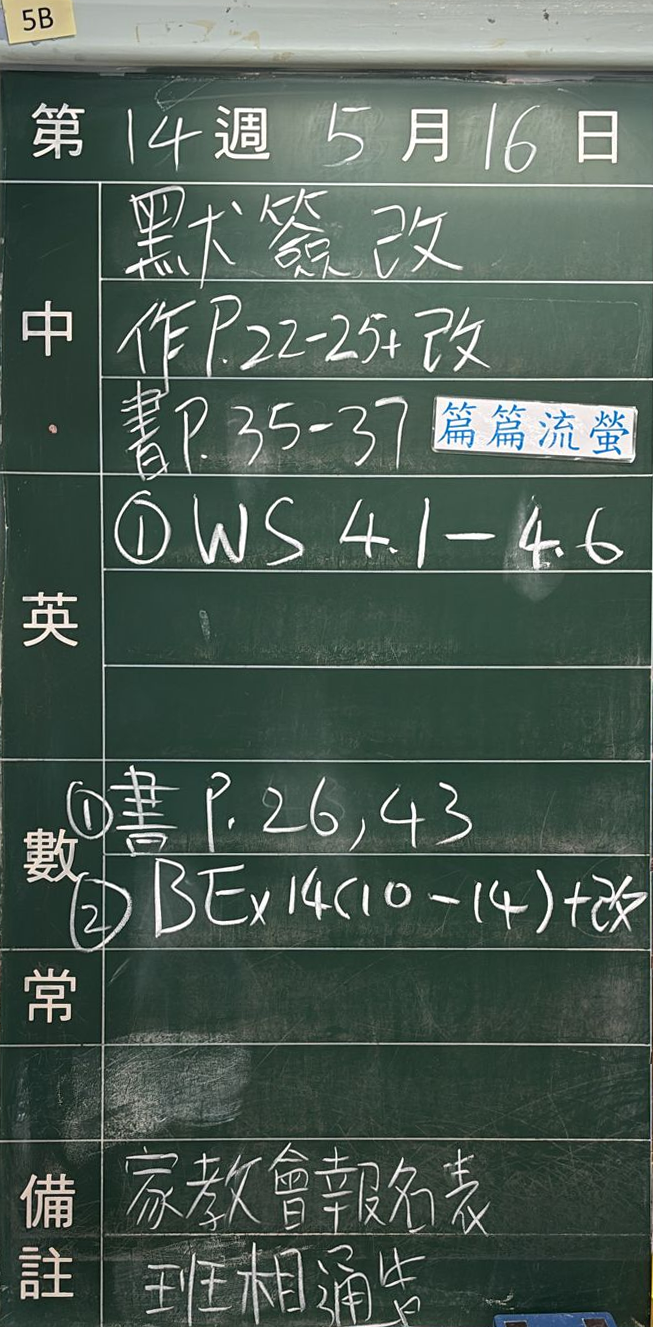 5B
第 14 週 5 月 16 日
中
默簽改
作P.22-25+改
書P.35-37 篇篇流螢
英
① WS 4.1-4.6
數
①書 P.26,43
② BEx14(10-14)+改
常
備註
家教會報名表
班相通告